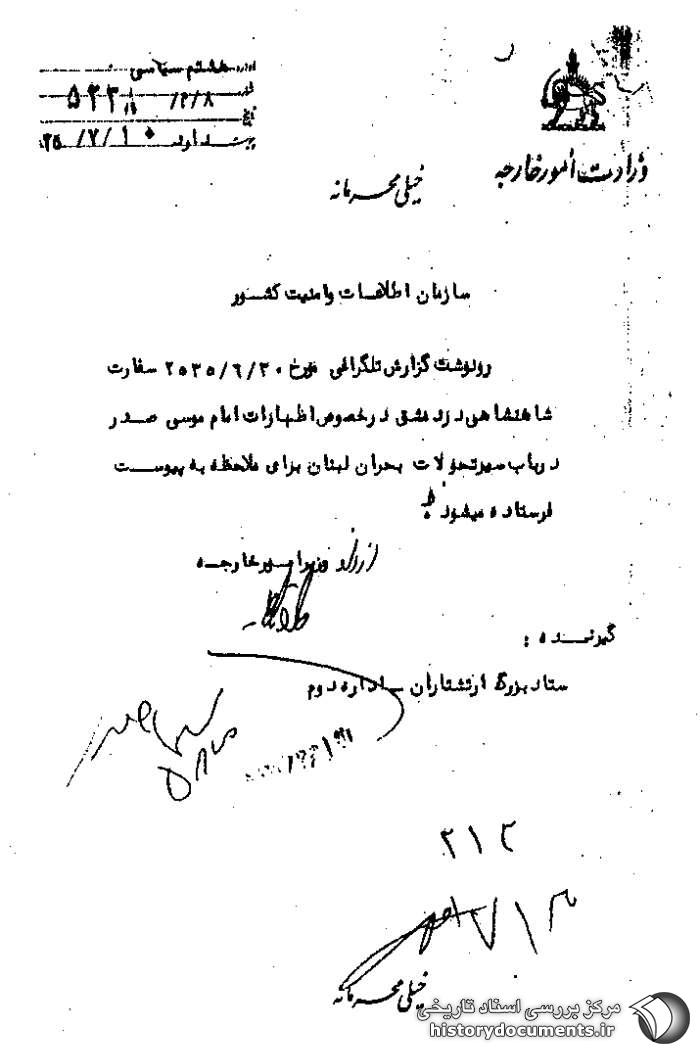 وزارت امور خارجه
اداره هشتم سیاسی
خیلی محرمانه
سازمان اطلاعات و امنیت کشور
رونوشت گزارش تلگرافی مورخ ۲۵۳۵/۶/۳۰ سفارت
شاهنشاهی در دمشق در خصوص اظهارات امام موسی صدر
در باب سیر تحولات بحران لبنان برای ملاحظه به پیوست
فرستاده میشود
از طرف وزیر امور خارجه
گیرنده :
ستاد بزرگ ارتشتاران - اداره دوم
۲۱۳
خیلی محرمانه
مرکز بررسی اسناد تاریخی
historydocuments.ir